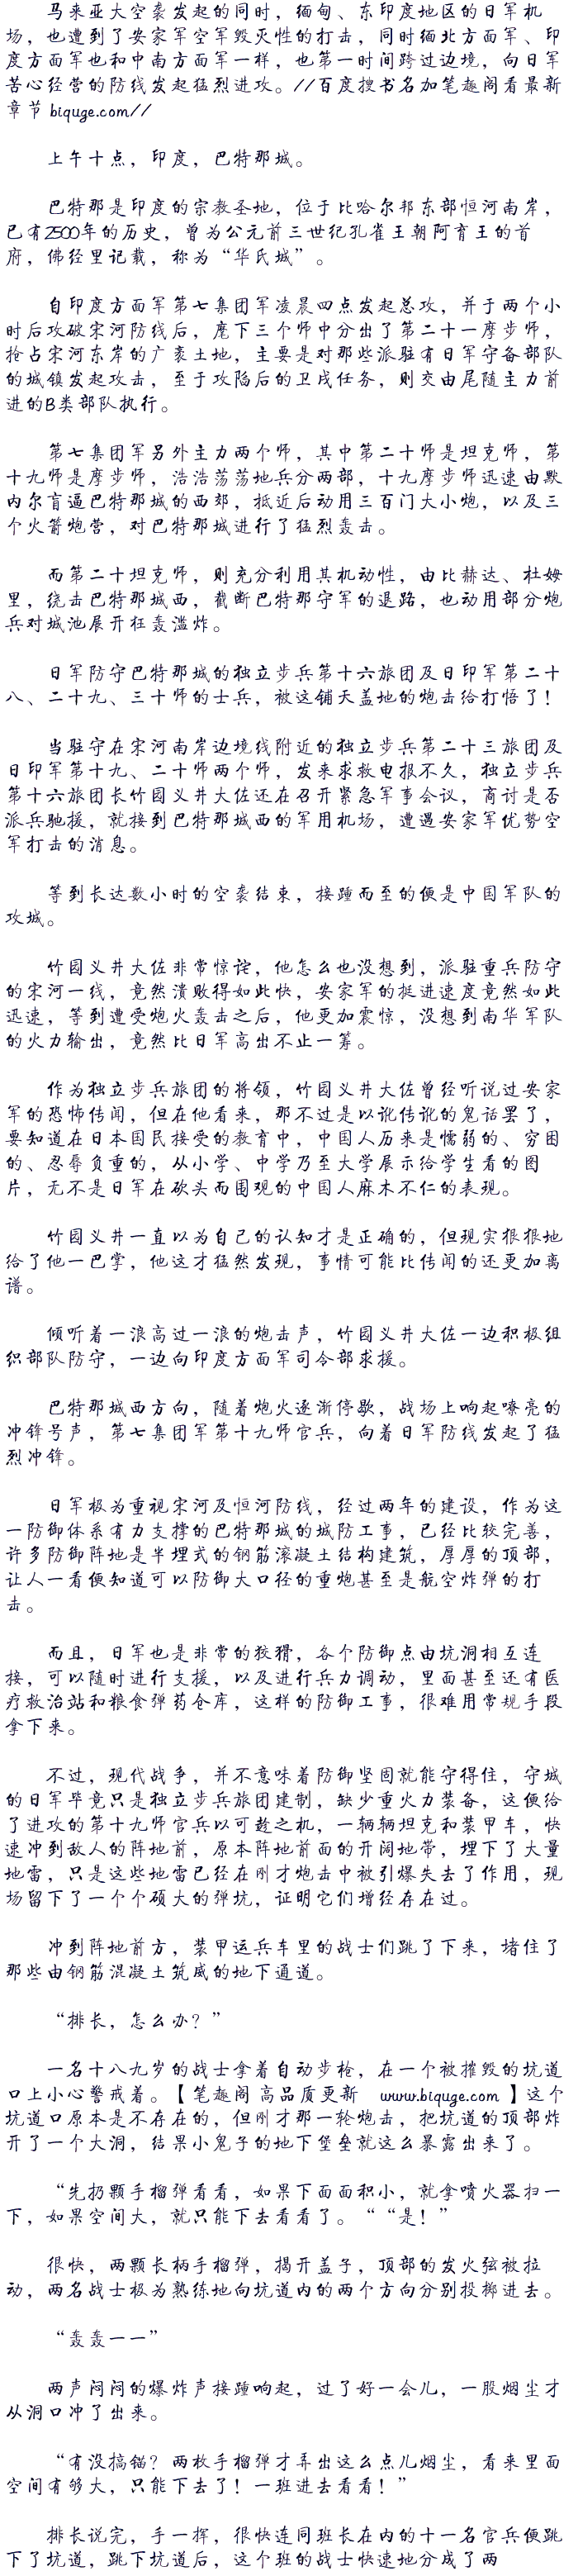 马来亚大空袭发起的同时，缅甸、东印度地区的日军机
场，也遭到了安家军空军毁灭性的打击，同时缅北方面军、印
度方面军也和中南方面军一样，也第一时间跨过边境，向日军
苦心经营的防线发起猛烈进攻。//百度搜书名加笔趣阁看最新
章节 biquge.com//
上午十点，印度，巴特那城。
巴特那是印度的宗教圣地，位于比哈尔邦东部恒河南岸，
已有2500年的历史，曾为公元前三世纪孔雀王朝阿育王的首
府，佛经里记载，称为“华氏城”。
自印度方面军第七集团军凌晨四点发起总攻，并于两个小
时后攻破宋河防线后，麾下三个师中分出了第二十一摩步师，
抢占宋河东岸的广袤土地，主要是对那些派驻有日军守备部队
的城镇发起攻击，至于攻陷后的卫戍任务，则交由尾随主力前
进的B类部队执行。
第七集团军另外主力两个师，其中第二十师是坦克师，第
十九师是摩步师，浩浩荡荡地兵分两部，十九摩步师迅速由默
内尔盲逼巴特那城的西郊，抵近后动用三百门大小炮，以及三
个火箭炮营，对巴特那城进行了猛烈轰击。
而第二十坦克师，则充分利用其机动性，由比赫达、杜姆
里，绕击巴特那城西，截断巴特那守军的退路，也动用部分炮
兵对城池展开枉轰滥炸。
日军防守巴特那城的独立步兵第十六旅团及日印军第二十
八、二十九、三十师的士兵，被这铺天盖地的炮击给打悟了！
当驻守在宋河南岸边境线附近的独立步兵第二十三旅团及
日印军第十九、二十师两个师，发来求救电报不久，独立步兵
第十六旅团长竹园义井大佐还在召开紧急军事会议，商讨是否
派兵驰援，就接到巴特那城西的军用机场，遭遇安家军优势空
军打击的消息。
等到长达数小时的空袭结束，接踵而至的便是中国军队的
攻城。
竹园义井大佐非常惊诧，他怎么也没想到，派驻重兵防守
的宋河一线，竟然溃败得如此快，安家军的挺进速度竟然如此
迅速，等到遭受炮火轰击之后，他更加震惊，没想到南华军队
的火力输出，竟然比日军高出不止一筹。
作为独立步兵旅团的将领，竹园义井大佐曾经听说过安家
军的恐怖传闻，但在他看来，那不过是以讹传讹的鬼话罢了，
要知道在日本国民接受的教育中，中国人历来是懦弱的、穷困
的、忍辱负重的，从小学、中学乃至大学展示给学生看的图
片，无不是日军在砍头而围观的中国人麻木不仁的表现。
竹园义井一直以为自己的认知才是正确的，但现实狠狠地
给了他一巴掌，他这才猛然发现，事情可能比传闻的还更加离
谱。
倾听着一浪高过一浪的炮击声，竹园义井大佐一边积极组
织部队防守，一边向印度方面军司令部求援。
巴特那城西方向，随着炮火逐渐停歇，战场上响起嘹亮的
冲锋号声，第七集团军第十九师官兵，向着日军防线发起了猛
烈冲锋。
日军极为重视宋河及恒河防线，经过两年的建设，作为这
一防御体系有力支撑的巴特那城的城防工事，已经比较完善，
许多防御阵地是半埋式的钢筋滚凝土结构建筑，厚厚的顶部，
让人一看便知道可以防御大口径的重炮甚至是航空炸弹的打
击。
而且，日军也是非常的狡猾，各个防御点由坑洞相互连
接，可以随时进行支援，以及进行兵力调动，里面甚至还有医
疗救治站和粮食弹药仓库，这样的防御工事，很难用常规手段
拿下来。
不过，现代战争，并不意味着防御坚固就能守得住，守城
的日军毕竟只是独立步兵旅团建制，缺少重火力装备，这便给
了进攻的第十九师官兵以可趁之机，一辆辆坦克和装甲车，快
速冲到敌人的阵地前，原本阵地前面的开阔地带，埋下了大量
地雷，只是这些地雷已经在刚才炮击中被引爆失去了作用，现
场留下了一个个硕大的弹坑，证明它们增经存在过。
冲到阵地前方，装甲运兵车里的战士们跳了下来，堵住了
那些由钢筋混凝土筑威的地下通道。
“排长，怎么办？”
一名十八九岁的战士拿着自动步枪，在一个被摧毁的坑道
口上小心警戒着。【 笔趣阁 高品质更新 www.biquge.com 】这个
坑道口原本是不存在的，但刚才那一轮炮击，把坑道的顶部炸
开了一个大洞，结果小鬼子的地下堡垒就这么暴露出来了。
“先扔颗手榴弹看看，如果下面面积小，就拿喷火器扫一
下，如果空间大，就只能下去看看了。““是！”
很快，两颗长柄手榴弹，揭开盖子，顶部的发火弦被拉
动，两名战士极为熟练地向坑道内的两个方向分别投掷进去。
“轰轰一一”
两声闷闷的爆炸声接踵响起，过了好一会儿，一股烟尘才
从洞口冲了出来。
“有没搞错？两枚手榴弹才弄出这么点儿烟尘，看来里面
空间有够大，只能下去了！一班进去看看！”
排长说完，手一挥，很快连同班长在内的十一名官兵便跳
下了坑道，跳下坑道后，这个班的战士快速地分成了两